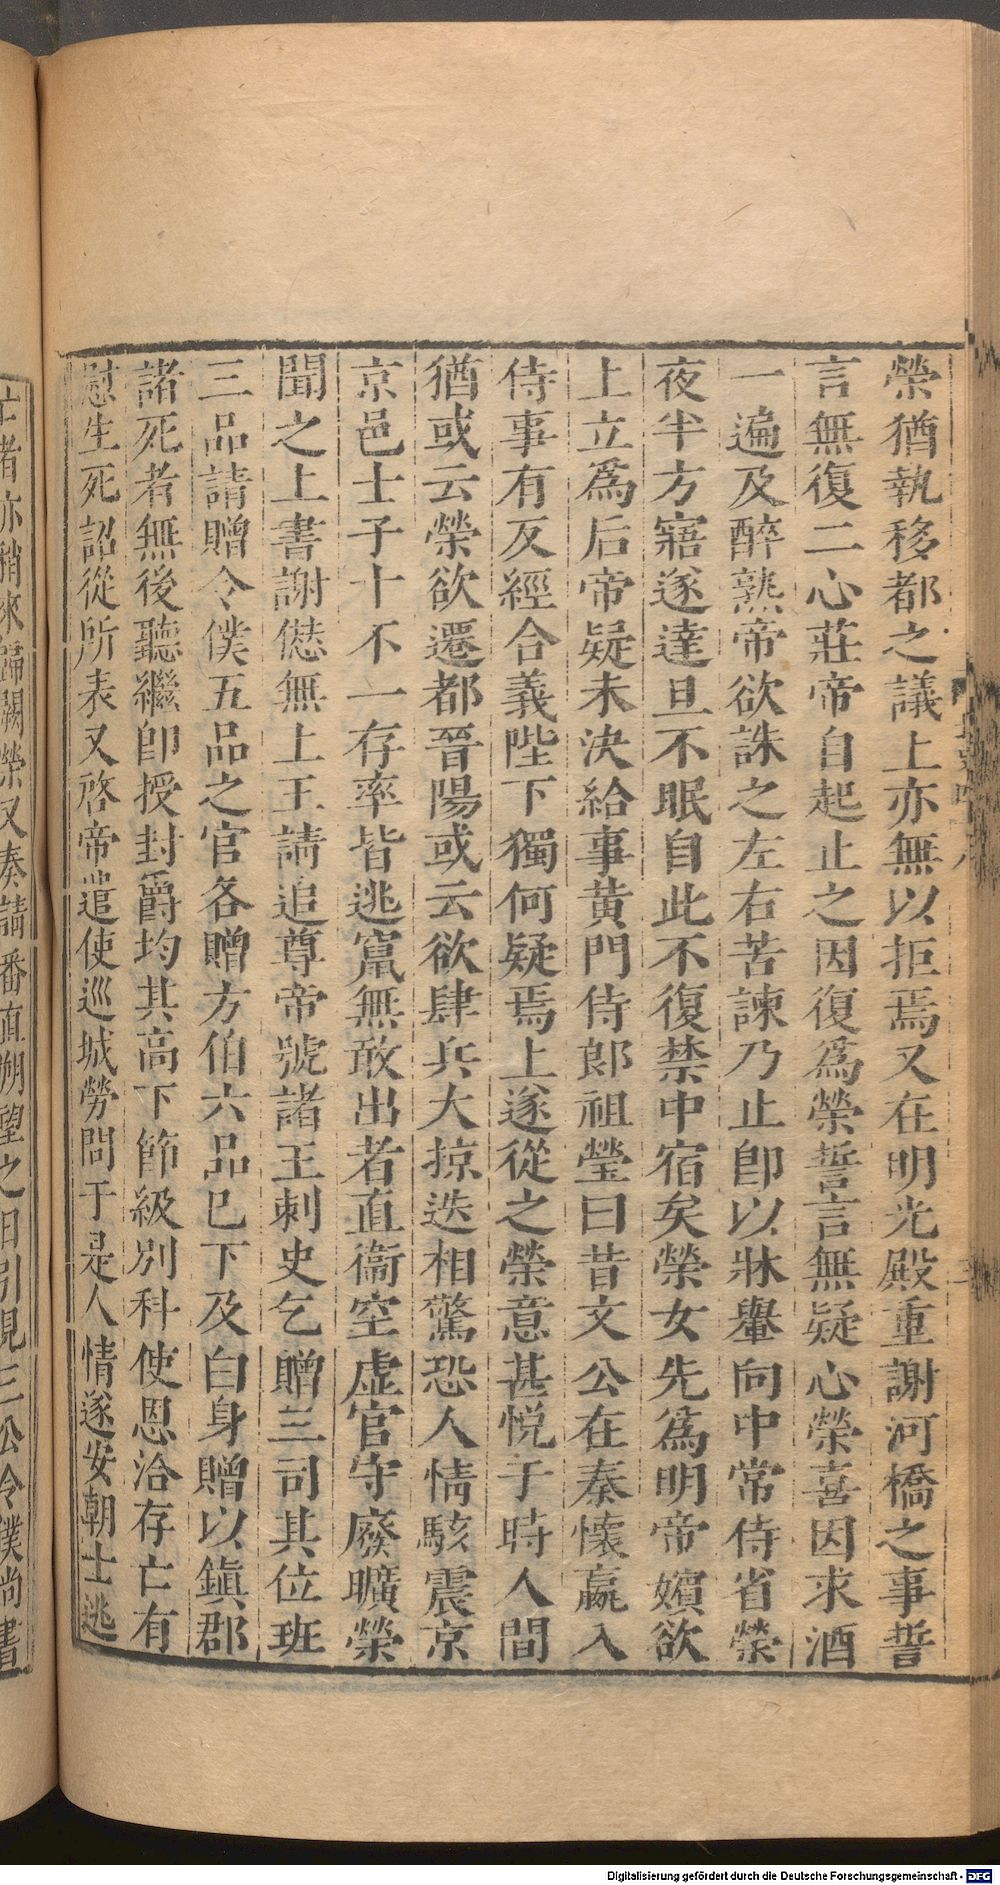 榮猶執移都之議上亦無以拒焉又在明光殿重謝河橋之事誓
言無復二心莊帝自起止之因復爲榮誓言無疑心榮喜因求酒
一遍及醉熟帝欲誅之左右苦諫乃止卽以牀轝向中常侍省榮
夜半方寤遂達旦不眠自此不復禁中宿矣榮女先爲明帝嬪欲
上立爲后帝疑未決給事黃門侍郎祖瑩曰昔文公在秦懷嬴入
侍事有反經合義陛下獨何疑焉上遂從之榮意甚悅于時人間
猶或云榮欲遷都晉陽或云欲肆兵大掠迭相驚恐人情駭震京
京邑士子十不一存率皆逃竄無敢出者直衞空虛官守廢曠榮
聞之上書謝愆無上王請追尊帝號諸王刺史乞贈三司其位班
三品請贈令僕五品之官各贈方伯六品巳下及白身贈以鎭郡
諸死者無後聽繼卽授封爵均其高下節級別科使恩洽存亡有
慰生死詔從所表又啓帝遣使巡城勞問于是人情遂安朝士逃
亡者亦稍來歸闕榮又奏請番直朔望之日引見三公令僕尚書
Digitalisierung gefördert durch die Deutsche Forschungsgemeinschaft - DFG